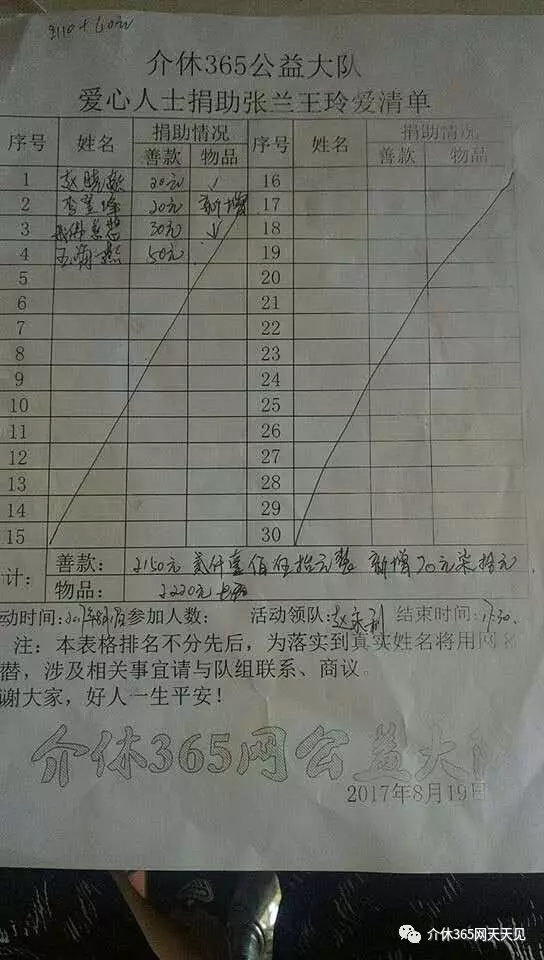 2110+60元
介休365公益大队
爱心人士捐助张兰王玲爱清单
序号 姓名 捐助情况 序号 姓名 捐助情况
善款 物品 善款 物品
1 赵晓 20元 16
2 李 20元 新增 17
3 30元 18
4 王 燕 50元 19
5 20
6 21
7 22
8 23
9 24
10 25
11 26
12 27
13 28
14 29
15 30
计: 善款: 2150元 贰仟壹佰伍拾元整 新增70元柒拾元
物品: 2220元
动时间: 参加人数: 活动领队: 赵 结束时间: 17:30.
注:本表格排名不分先后,为落实到真实姓名将用网名
替,涉及相关事宜请与队组联系、商议。
谢大家,好人一生平安!
介休365网公益大队
2017年8月19日
介休365网天天见